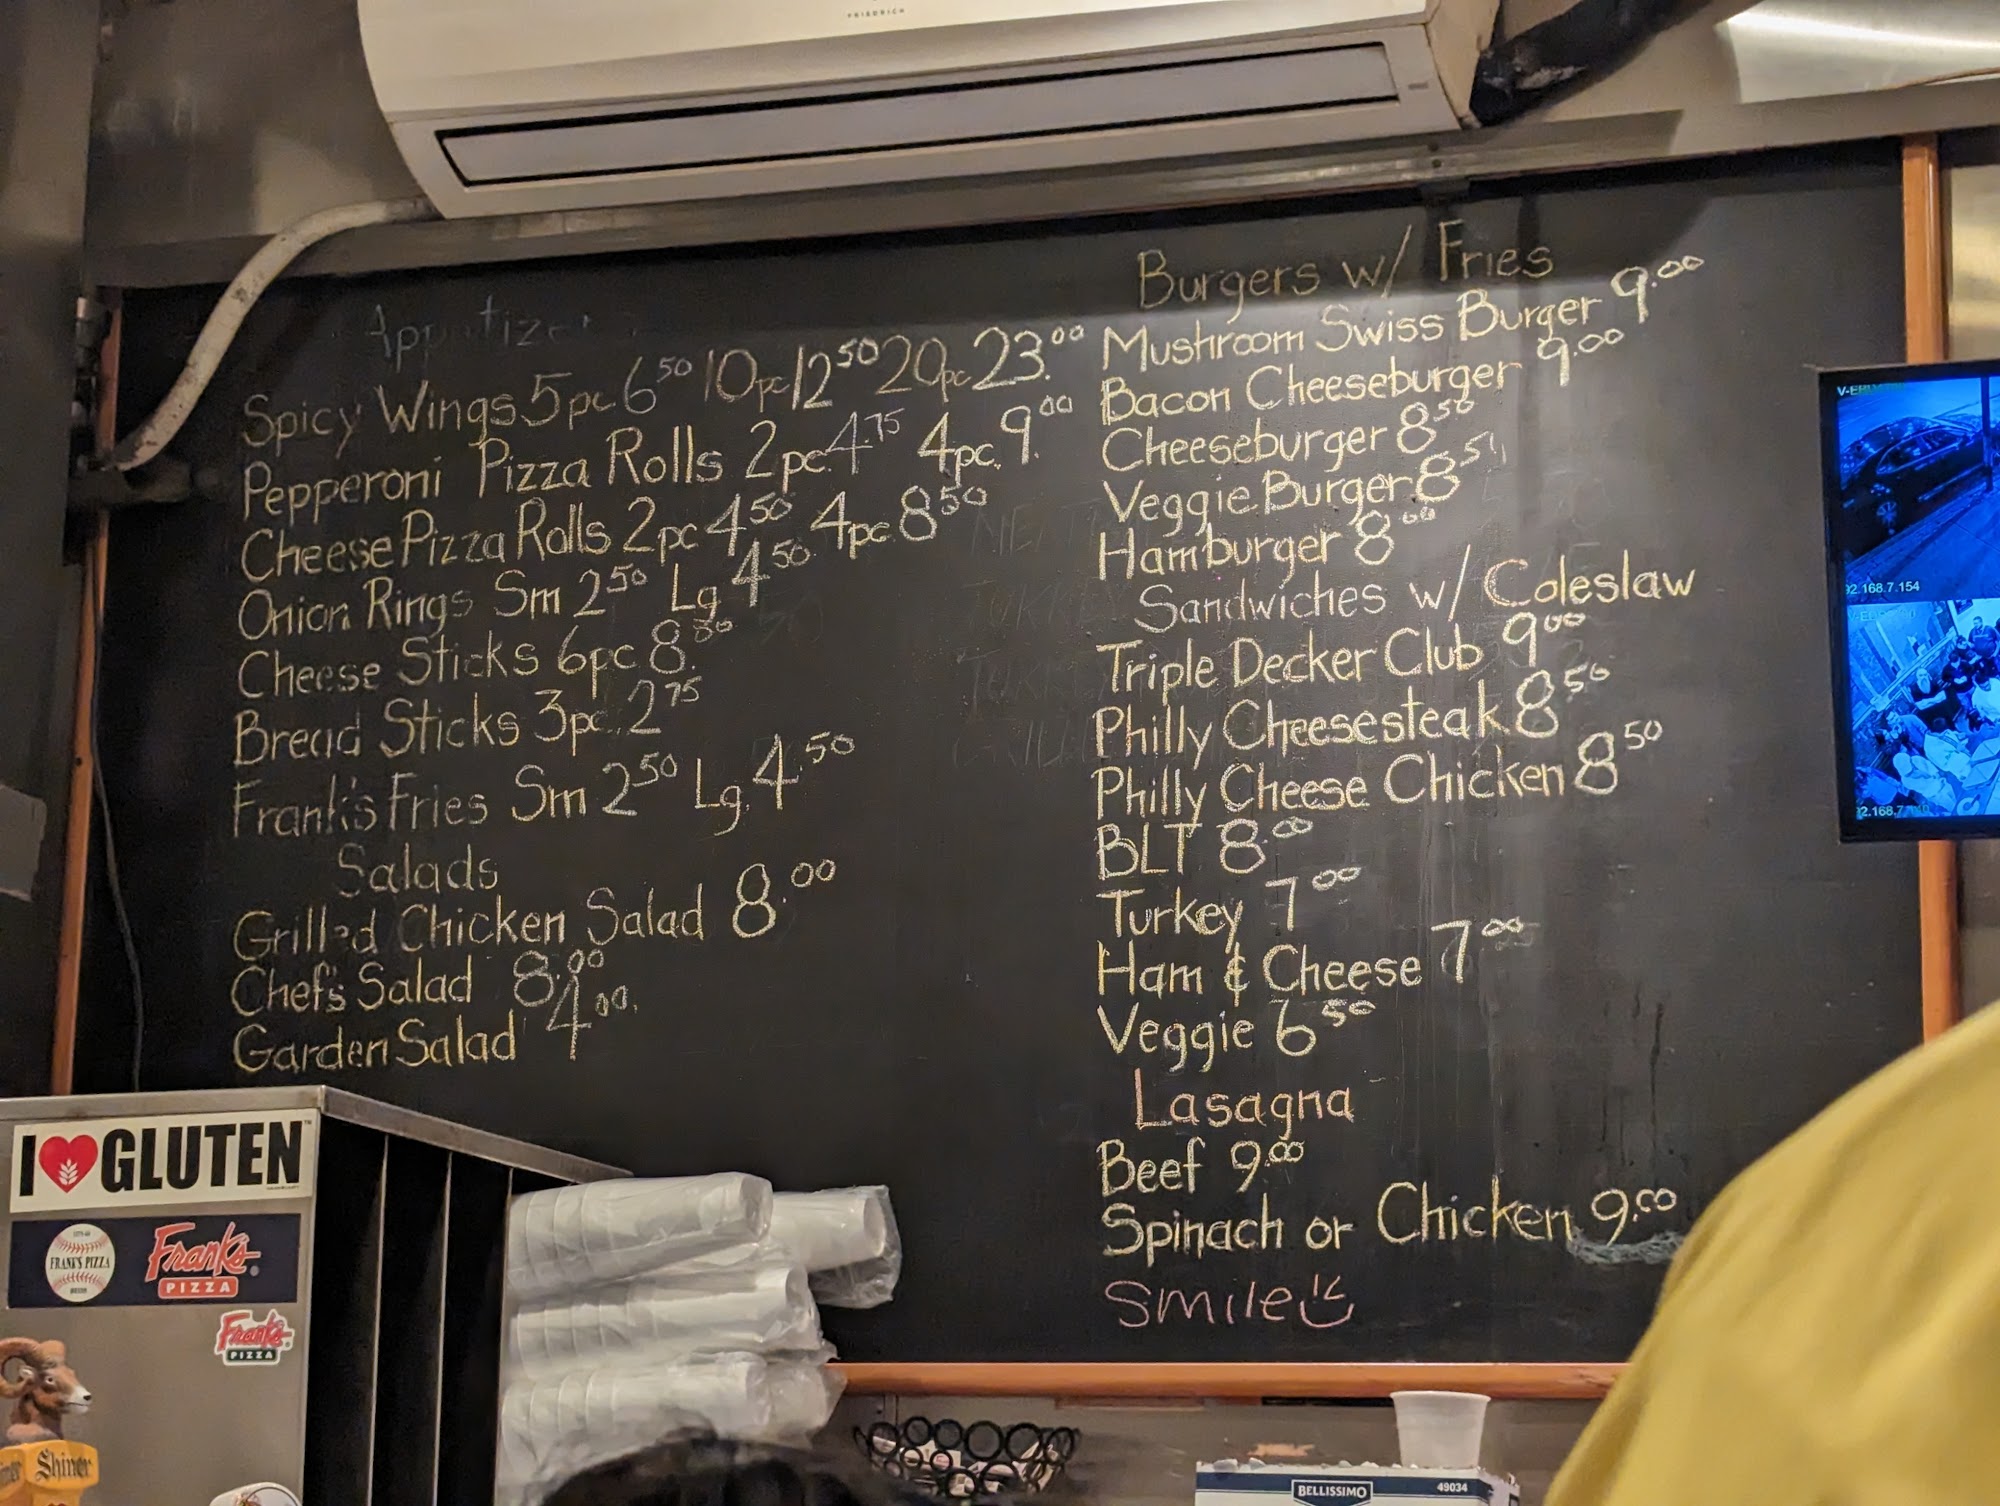 FRIEDRICH
Spicy Wings 5pc 6.50 10pc 12.50 20pc 23.00
Pepperoni Pizza Rolls 2pc. 4.75 4pc. 9.00
Cheese Pizza Rolls 2pc 4.50 4pc. 8.50
Onion Rings Sm 2.50 Lg. 4.50
Cheese Sticks 6pc 8.
Bread Sticks 3pc. 2.75
Frank's Fries Sm 2.50 Lg. 4.50
Salads
Grilled Chicken Salad 8.00
Chef's Salad 8.00
Garden Salad 4.00
Burgers w/ Fries
Mushroom Swiss Burger 9.00
Bacon Cheeseburger 9.00
Cheeseburger 8.50
Veggie Burger 8.50
Hamburger 8.00
Sandwiches w/ Coleslaw
Triple Decker Club 9.00
Philly Cheesesteak 8.50
Philly Cheese Chicken 8.50
BLT 8.00
Turkey 7.00
Ham & Cheese 7.00
Veggie 6.50
Lasagna
Beef 9.00
Spinach or Chicken 9.00
Smile
92.168.7.154
I GLUTEN
FRANK'S PIZZA
Frank's
PIZZA
Frank's
PIZZA
Shiner
BELLISSIMO
49034